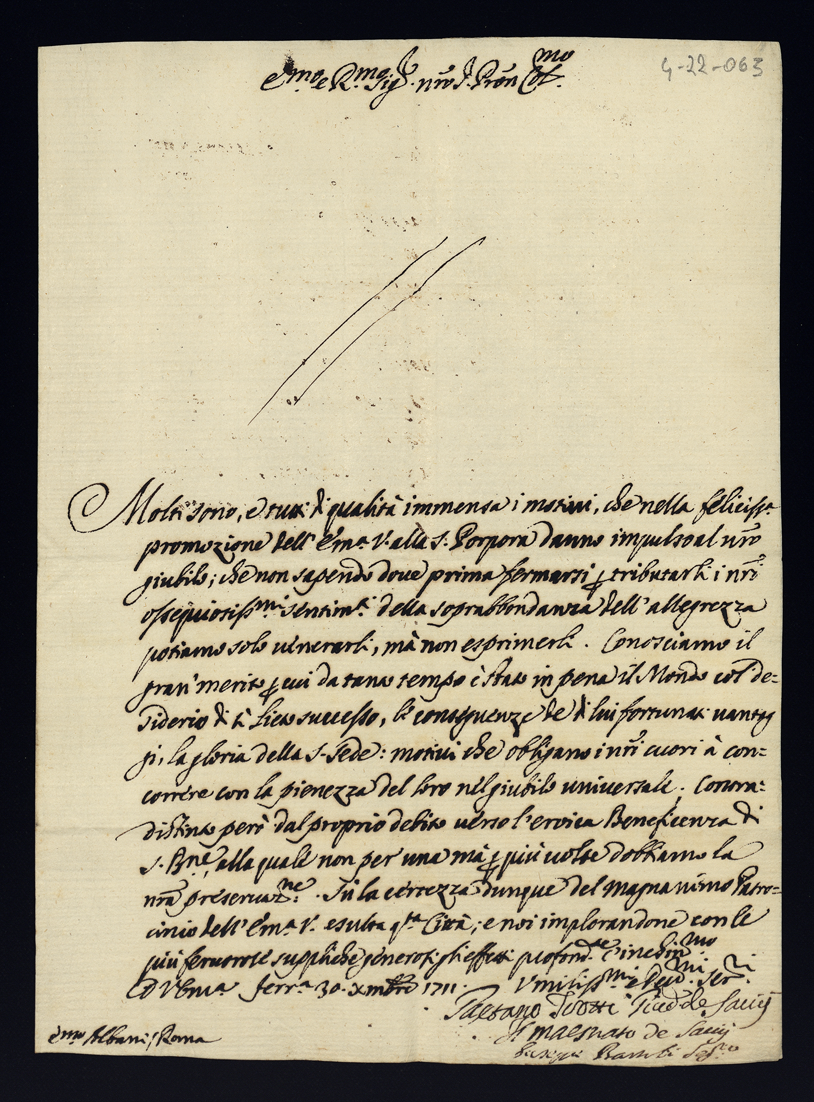 4-22-063
Emo. e Rmo. Sigr. nro S. Pron Colmo.
Molti sono, e tutti di qualità immensa i motivi, che nella feliciss.a
promozione dell'Em.a V. alla S. Porpora danno impulso al nro
giubilo; che non sapendo dove prima fermarsi p tributarli i nri
ossequiosiss.mi sentim.ti della soprabbondanza dell'allegrezza
potiamo solo venerarli, mà non esprimerli. Conosciamo il
gran' merito p cui da tanto tempo è stato in pena il Mondo col de-
siderio di sì lieto successo, le conseguenze de di lui fortunati vantag
gi, la gloria della S. Sede: motivi che obligano i nri cuori à con=
correre con la pienezza del loro nel giubilo universale. Contra=
distinto però dal proprio debito verso l'eroica Beneficenza di
S. Bne, alla quale non per una mà p più volte dobbiamo la
nra preservaz.ne. Sù la certezza dunque del magnanimo Patro-
cinio dell'Em.a V. esulta q.ta Città; e noi implorandone con le
più fervorose suppliche generosi gli effetti profond.te c'inchin.mo
Di V. Em.a Ferr.a 30. Xmbre 1711. Umiliss.mi e Dev.mi Ser.ri
Gaetano Giud.e de Savij
Il maestrato de Savij
Giuseppe Seg.rio
Emo Albani / Roma